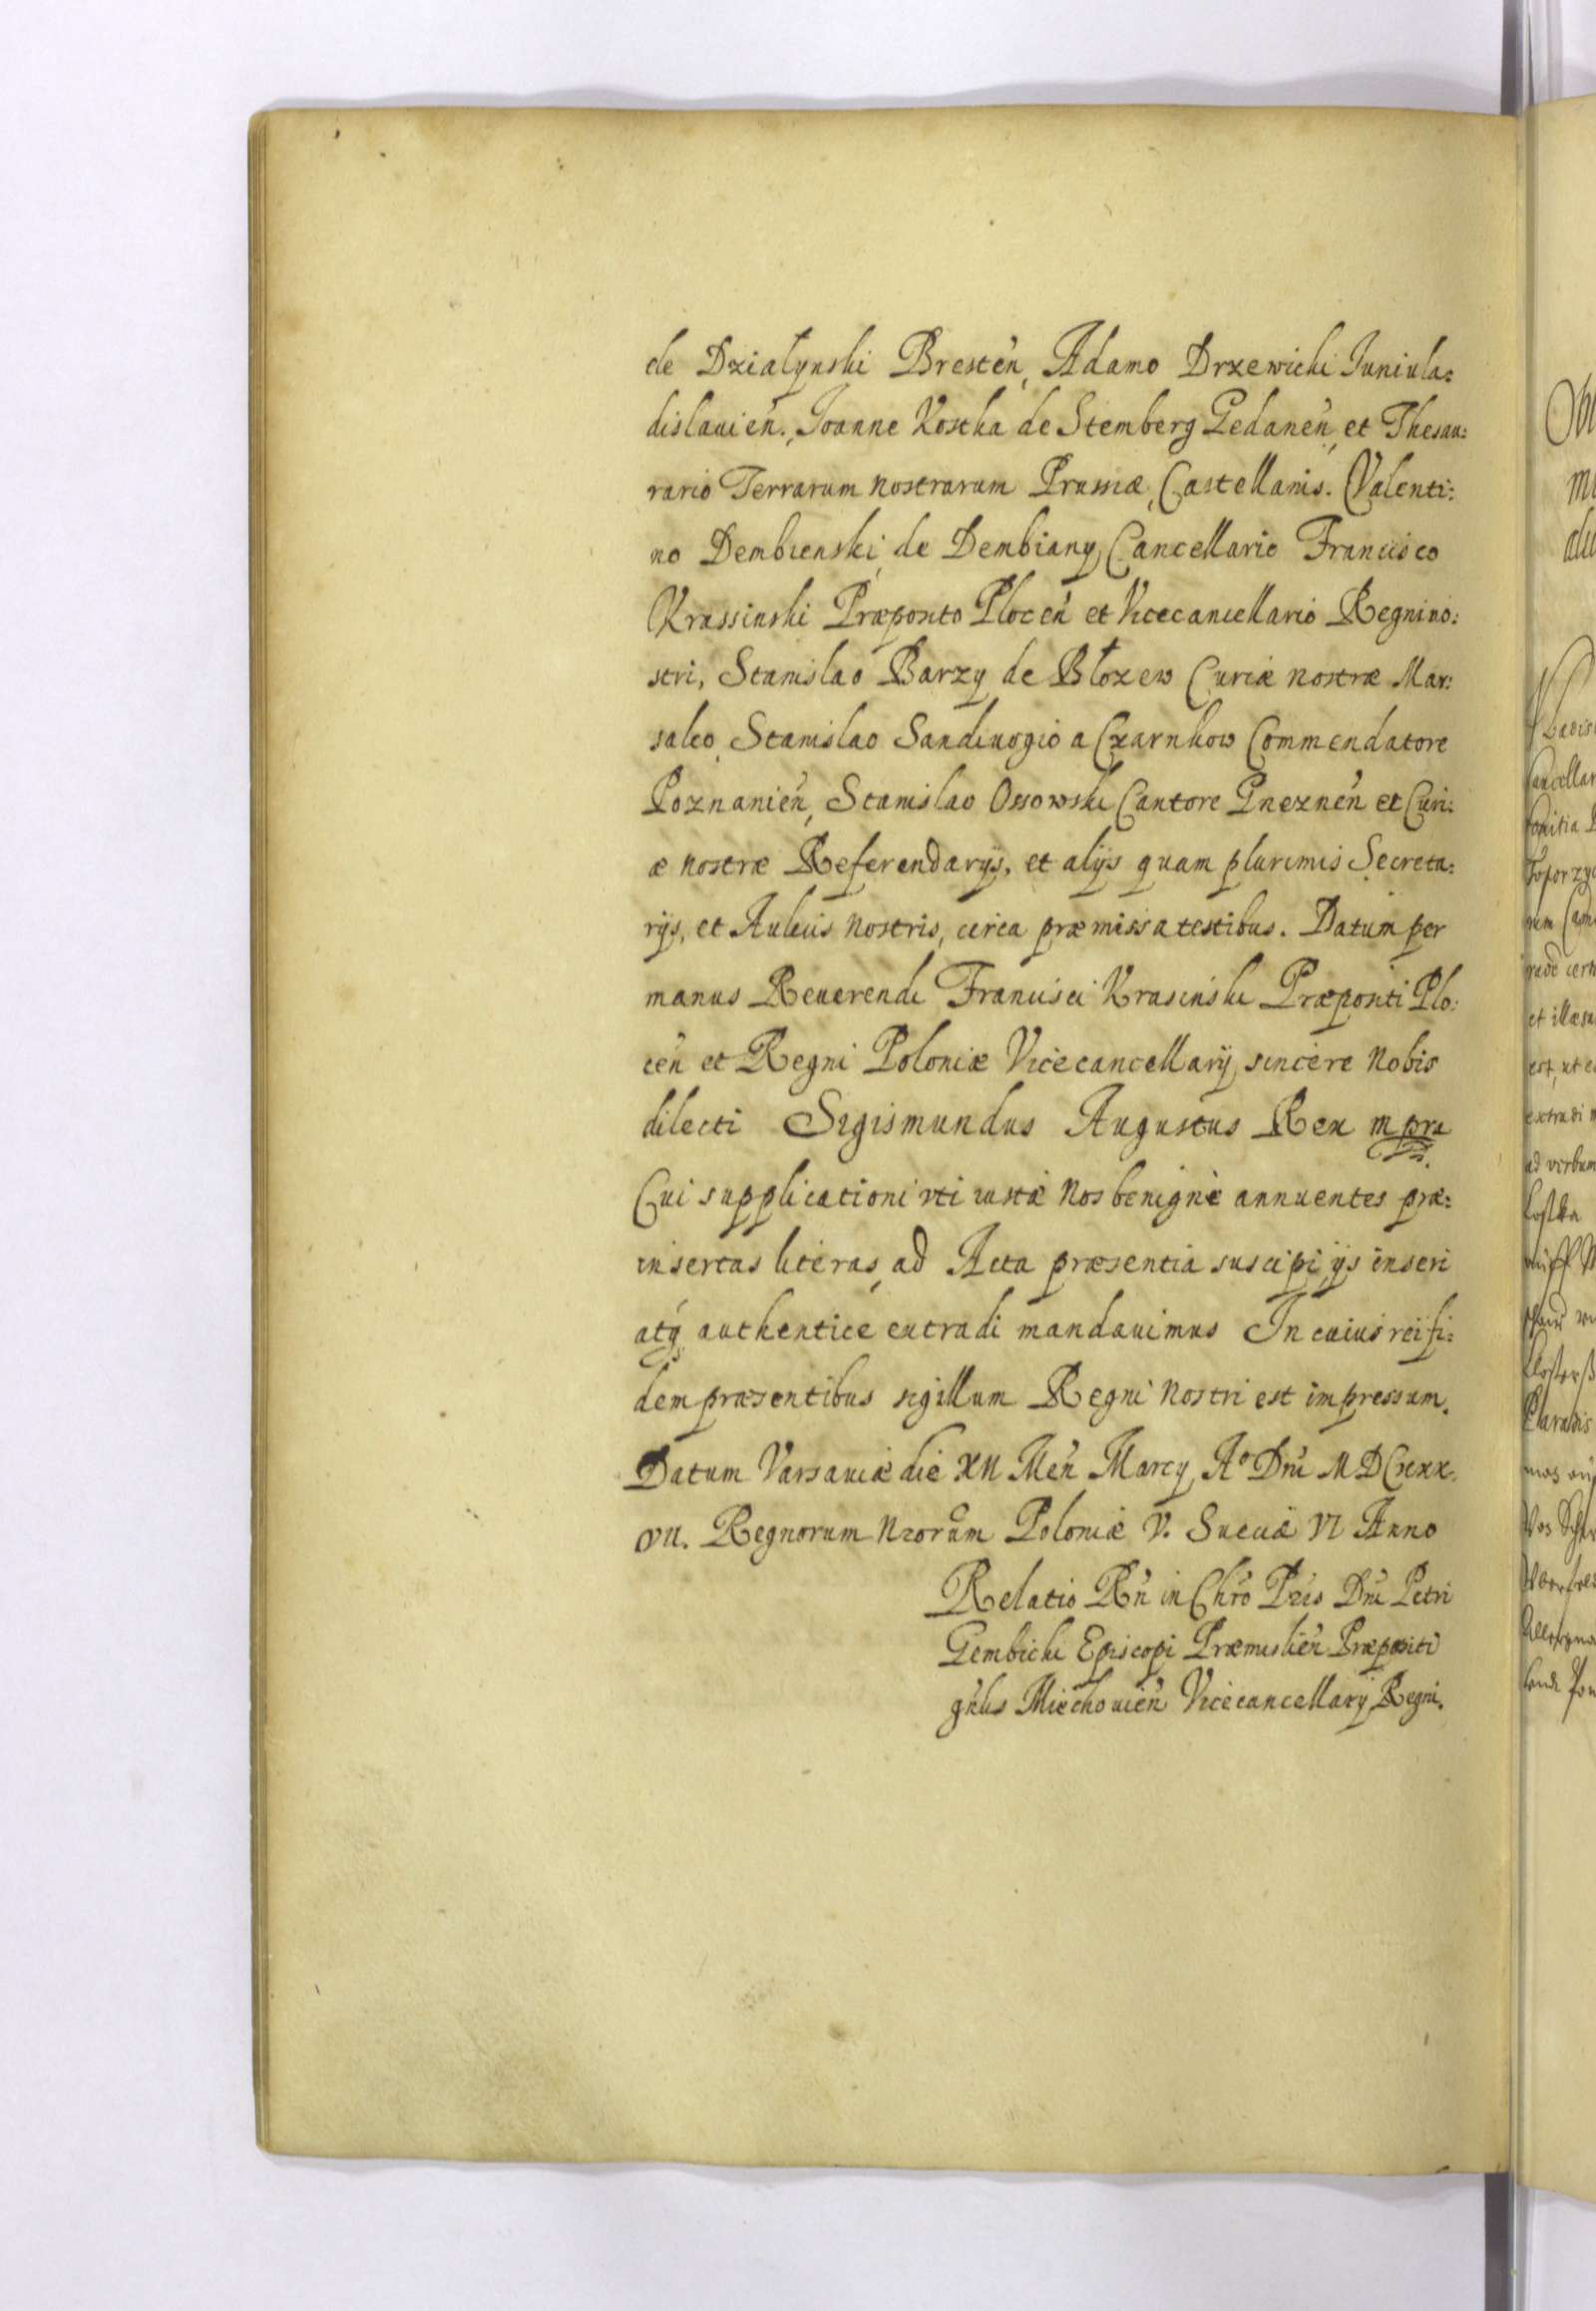 de Działynski Bresteñ, Adamo Drzewicki Juniula:
dislauieñ., Joanne Kostka de Stemberg Gedaneñ, et Thesau:
rario Terrarum nostrarum Prussiæ, Castellanis. Valenti:
no Dembienski, de Dembiany Cancellario Francisco
Krassinski Præposito Ploceñ et Vicecancellario Regni no:
stri, Stanislao Barzy de Błozew Curiæ nostræ Mar:
salco, Stanislao Sandivogio a Czarnkow Commendatore
Poznanieñ, Stanislao Ossowski Cantore Gnezneñ et Curi:
æ nostræ Referendarijs, et alijs quam plurimis Secreta:
rijs, et Aulicis nostris, circa præmissa testibus. Datum per
manus Reuerendi Francisci Krasinski Præpositi Plo:
ceñ et Regni Poloniæ Vicecancellarij sincere Nobis
dilecti Sigismundus Augustus Rex m pra
Cui supplicationi vti iustæ Nos benignè annuentes præ:
insertas literas, ad Acta præsentia suscipi, ijs inseri
atq authenticè extradi mandauimus In cuius rei fi:
dem præsentibus sigillum Regni Nostri est impressum.
Datum Varsauiæ die XII Meñ Marcy, Aº Dñi MDCXXX
VII. Regnorum Nrorum Poloniæ V. Sueciæ VI Anno
Relatio Rñ in Chro Pris Dñi Petri
Gembicki Episcopi Præmislieñ Præpositi
gñlis Miechouieñ Vicecancellarij Regni.